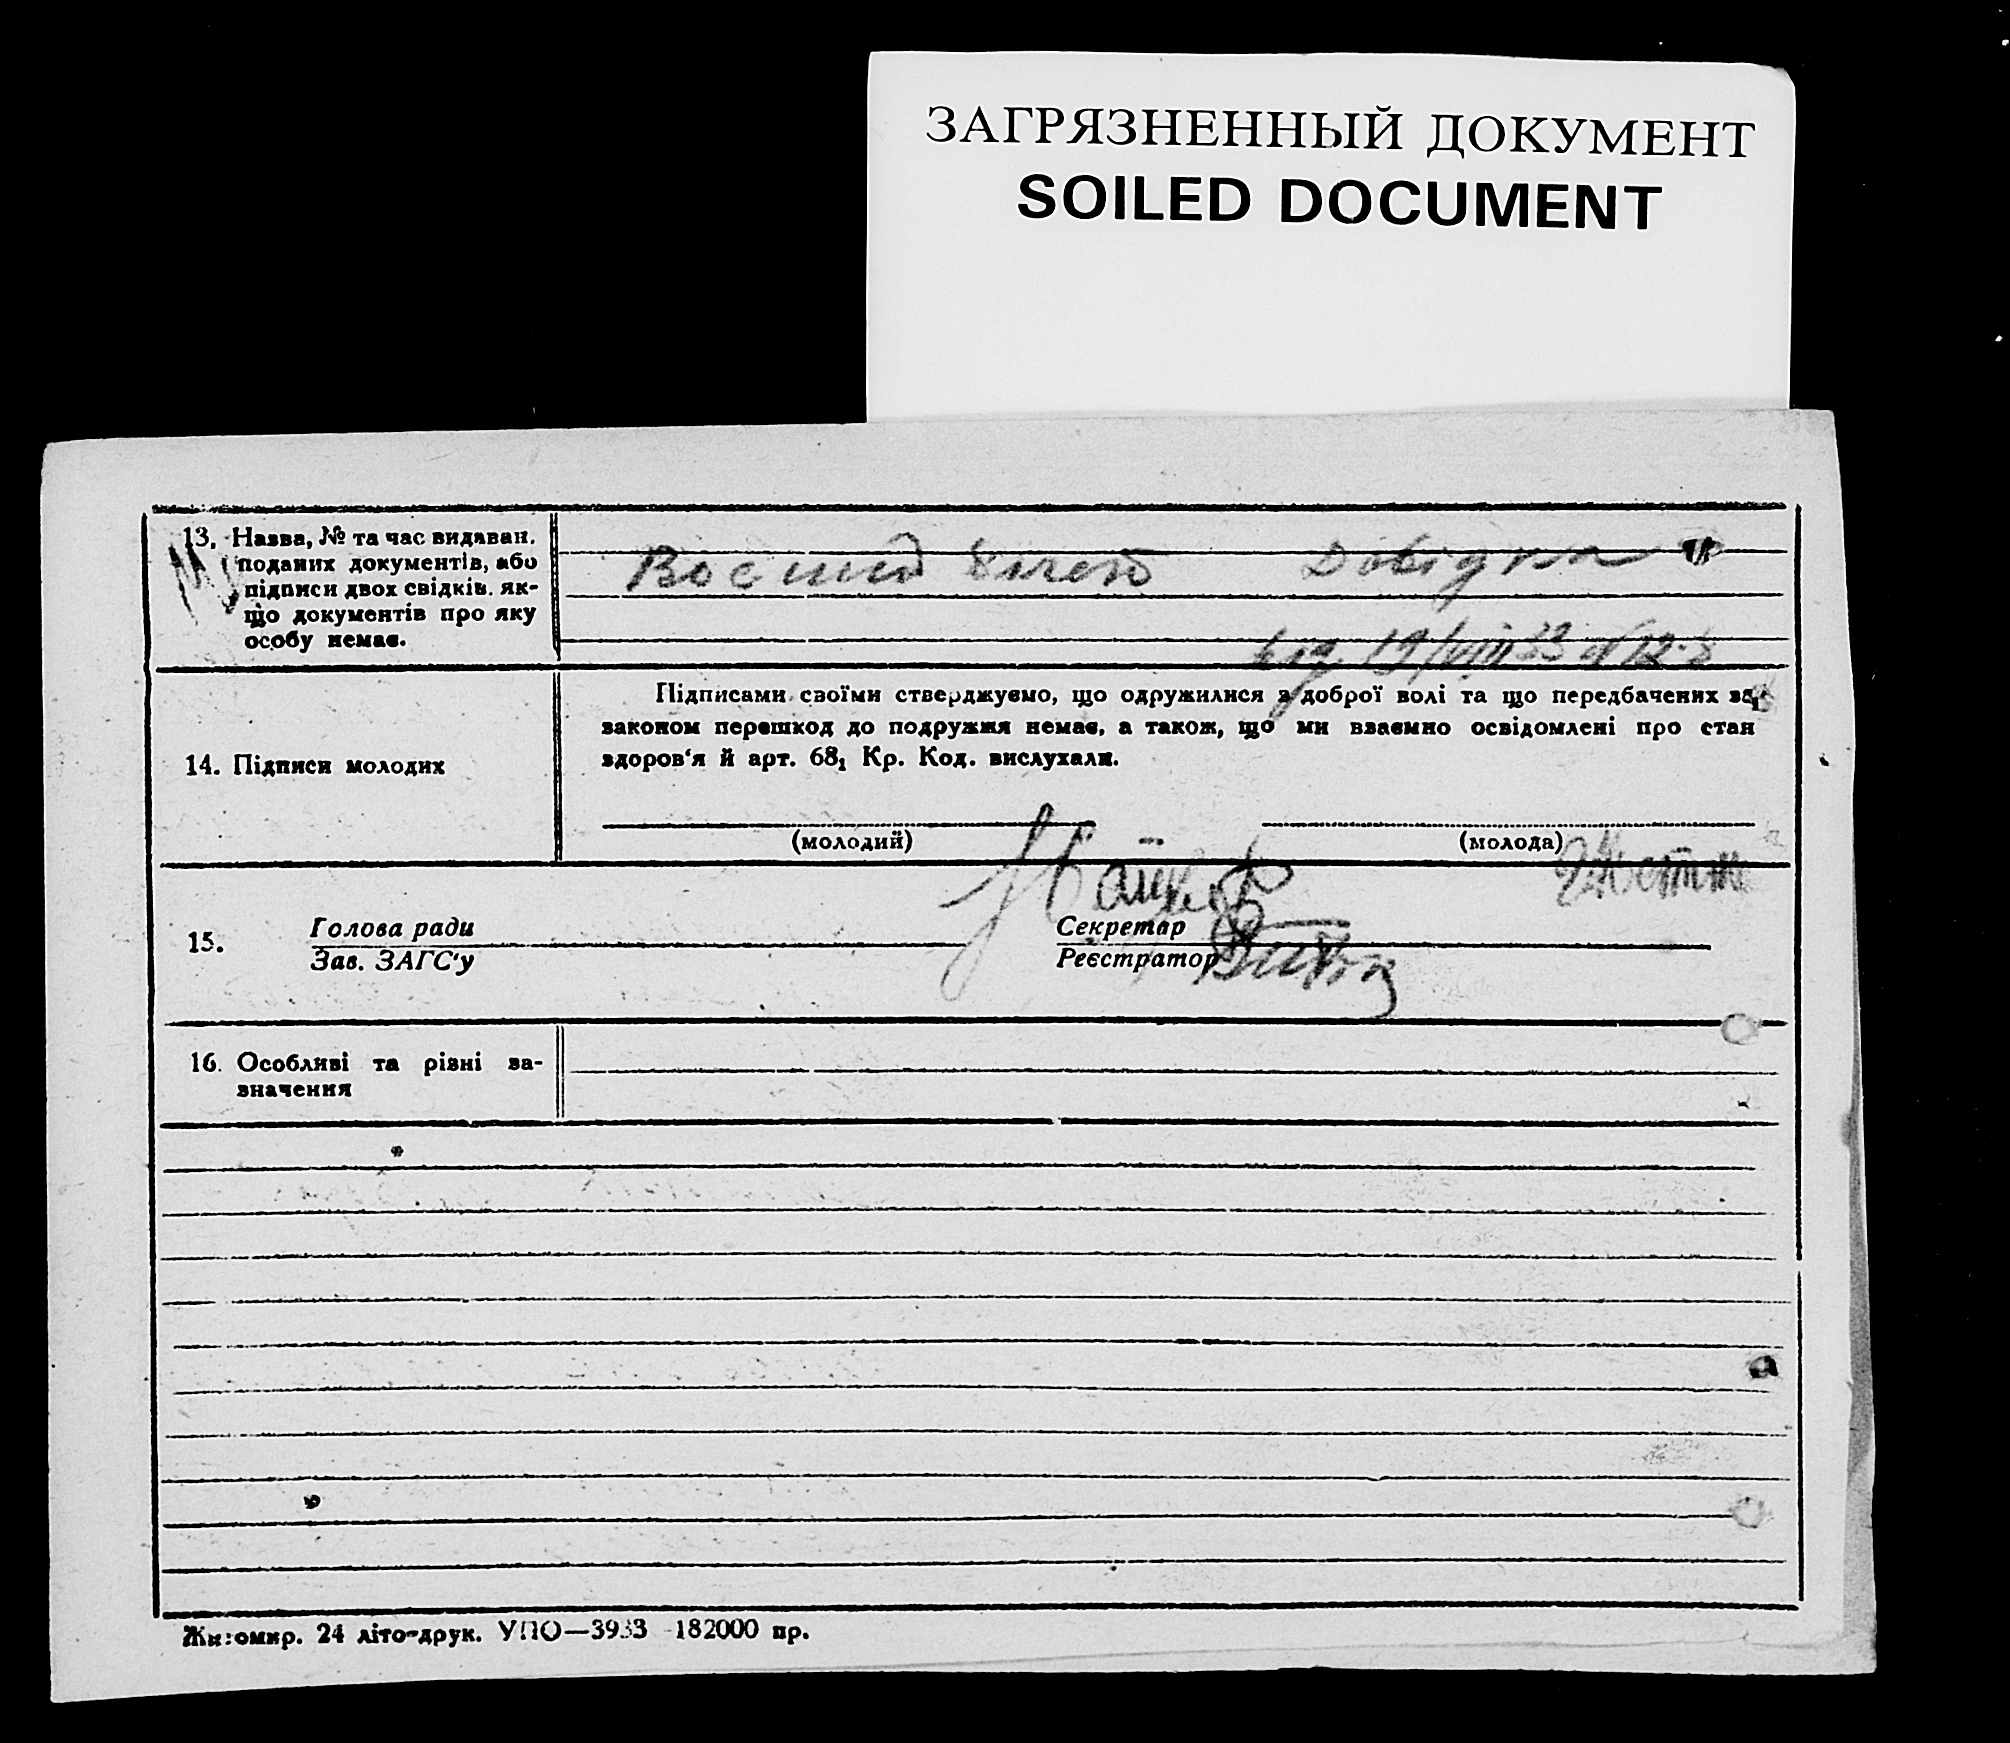 ЗАГРЯЗНЕННЫЙ ДОКУМЕНТ
SOILED DOCUMENT
13. Назва, № та час видаван.
поданих документів, або
підписи двох свідків. як-
що документів про яку
особу немає.
Воєний білет Довідка
від. 19/VIII 33
14. Підписи молодих
Підписами своїми стверджуємо, що одружилися з доброї волі та що передбачених за
законом перешкод до подружжя немає, а також, що ми взаємно освідомлені про стан
здоров‘я й арт. 68, Кр. Код. вислухали.
(молодий) (молода)
15. Голова ради
Зав. ЗАГС‘у
Секретар
Реєстратор
16. Особливі та різні за-
значення
Житомир. 24 літо-друк. УПО—3933 182000 пр.